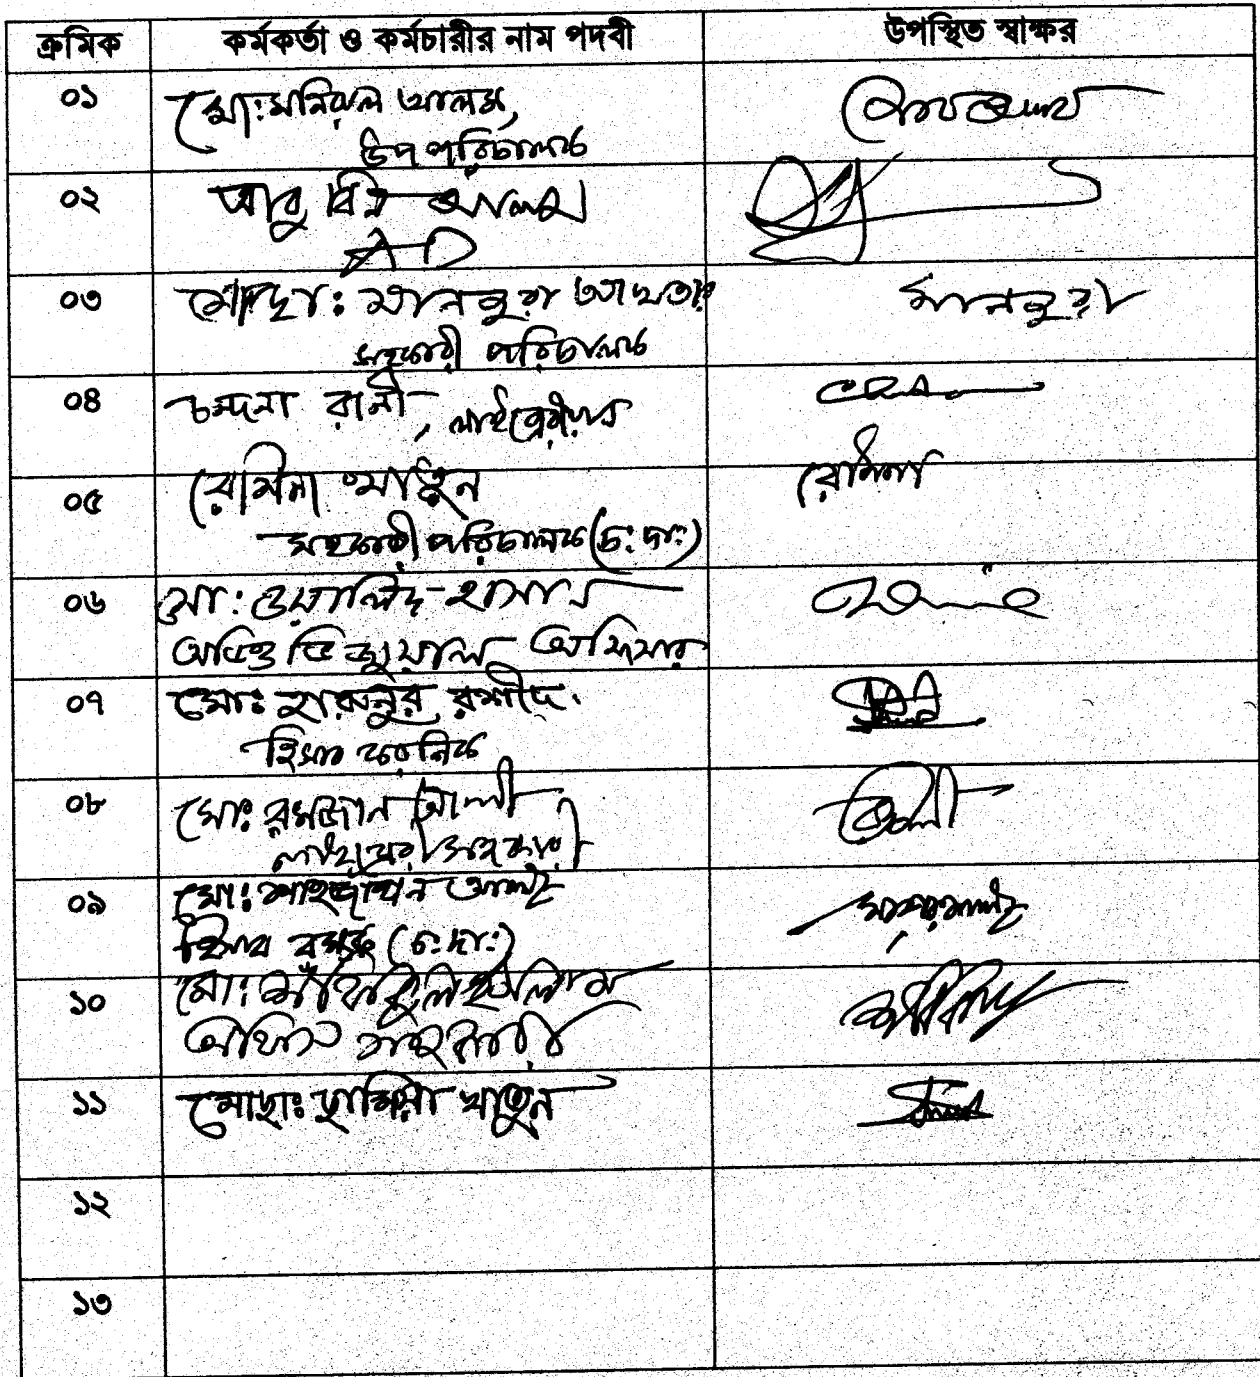 ক্রমিক কর্মকর্তা ও কর্মচারীর নাম পদবী উপস্থিত স্বাক্ষর
০১ মোঃ মনিরুল আলম,
উপ পরিচালক
০২ আবু আলম
০৩ মোছাঃ মানসুরা আখতার মানসুরা
সহকারী পরিচালক
০৪ চন্দনা রানী, লাইব্রেরীয়ান
০৫ রোমিনা খাতুন রোমিনা
সহকারী পরিচালক (চঃ দাঃ)
০৬ মোঃ ওয়ালিদ হাসান
অডিও ভিজুয়াল অফিসার
০৭ মোঃ হারুনুর রশীদ
হিসাব করনিক
০৮ মোঃ রমজান আলী আলী
লাইব্রেরী সহকারী
০৯ মোঃ শাহজাহান আলী
হিসাব রক্ষক (চঃ দাঃ)
১০ মোঃ শফিকুল ইসলাম
অফিস সহকারী
১১ মোছাঃ খাতুন
১২
১৩